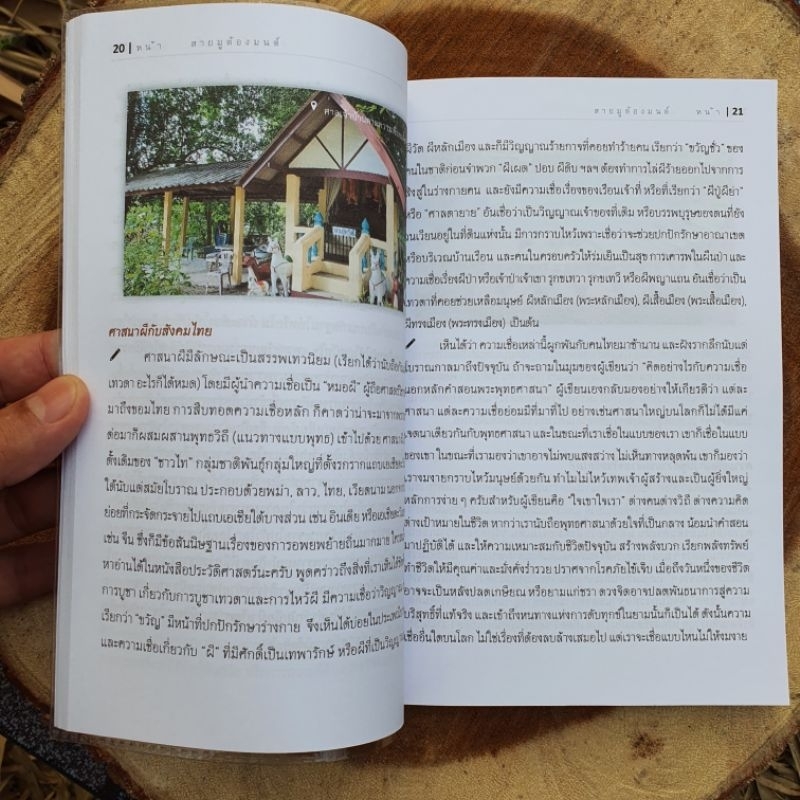 20 | หน้า สายมูต้องมนต์
ศาสนาผีกับสังคมไทย
ศาสนาผีมีลักษณะเป็นสรรพเทวนิยม (เรียกได้ว่านับถือ
เทวดา อะไรก็ได้หมด) โดยมีผู้นำความเชื่อเป็น "หมอผี" ผู้ถือศาสนา
มาถึงขอมไทย การสืบทอดความเชื่อหลัก ก็คาดว่าน่าจะมาจาก
ต่อมาก็ผสมผสานพุทธวิถี (แนวทางแบบพุทธ) เข้าไปด้วย ศาสนา
ดั้งเดิมของ "ชาวไท" กลุ่มชาติพันธุ์กลุ่มใหญ่ที่ตั้งรกรากแถบเอเชีย
ใต้นับแต่สมัยโบราณ ประกอบด้วยพม่า, ลาว, ไทย, เวียดนาม นอกจาก
ย่อยที่กระจัดกระจายไปแถบเอเชียใต้บางส่วน เช่น อินเดีย หรือเอเชียตะวัน
เช่น จีน ซึ่งก็มีข้อสันนิษฐานเรื่องของการอพยพย้ายถิ่นมากมาย
หาอ่านได้ในหนังสือประวัติศาสตร์นะครับ พูดคร่าวถึงสิ่งที่เราเห็นได้
การบูชา เกี่ยวกับการบูชาเทวดาและการไหว้ผี มีความเชื่อว่าวิญญาณ
เรียกว่า "ขวัญ" มีหน้าที่ปกปักรักษาร่างกาย จึงเห็นได้บ่อยในประเพณี
และความเชื่อเกี่ยวกับ "ผี" ที่มีศักดิ์เป็นเทพารักษ์ หรือผีที่เป็นวิญญาณ
สายมูต้องมนต์ หน้า | 21
ผีวัด ผีหลักเมือง และก็มีวิญญาณร้ายกาจที่คอยทำร้ายคน เรียกว่า "ขวัญชั่ว" ของ
คนในชาติก่อนจำพวก "ผีเผต" ปอบ ผีดิบ ฯลฯ ต้องทำการไล่ผีร้ายออกไปจากการ
สิงสู่ในร่างกายคน และยังมีความเชื่อเรื่องของเรือนเจ้าที่ หรือที่เรียกว่า "ผีปู่ผีย่า"
หรือ "ศาลตายาย" อันเชื่อว่าเป็นวิญญาณเจ้าของที่เดิม หรือบรรพบุรุษของตนที่ยัง
วนเวียนอยู่ในที่ดินแห่งนั้น มีการกราบไหว้เพราะเชื่อว่าจะช่วยปกปักรักษาอาณาเขต
หรือบริเวณบ้านเรือน และคนในครอบครัวให้ร่มเย็นเป็นสุข การเคารพในผืนป่า และ
ความเชื่อเรื่องผีป่า หรือเจ้าป่าเจ้าเขา รุกขเทวา รุกขเทวี หรือผีพญาแถน อันเชื่อว่าเป็น
เทวดาที่คอยช่วยเหลือมนุษย์ ผีหลักเมือง (พระหลักเมือง), ผีเสื้อเมือง (พระเสื้อเมือง),
ผีทรงเมือง (พระทรงเมือง) เป็นต้น
เห็นได้ว่า ความเชื่อเหล่านี้ผูกพันกับคนไทยมาช้านาน และฝังรากลึกนับแต่
โบราณกาลมาถึงปัจจุบัน ถ้าจะถามในมุมของผู้เขียนว่า "คิดอย่างไรกับความเชื่อ
นอกหลักคำสอนพระพุทธศาสนา" ผู้เขียนเองกลับมองอย่างให้เกียรติว่า แต่ละ
ศาสนา แต่ละความเชื่อย่อมมีที่มาที่ไป อย่างเช่นศาสนาใหญ่บนโลกก็ไม่ได้มีแค่
เจตนาเดียวกันกับพุทธศาสนา และในขณะที่เราเชื่อในแบบของเรา เขาก็เชื่อในแบบ
ของเขา ในขณะที่เรามองว่าเขาอาจไม่พบแสงสว่าง ไม่เห็นทางหลุดพ้น เขาก็มองว่า
เรางมงายกราบไหว้มนุษย์ด้วยกัน ทำไมไม่ไหว้เทพเจ้าผู้สร้างและเป็นผู้ยิ่งใหญ่
หลักการง่าย ๆ ครับสำหรับผู้เขียนคือ "ใจเขาใจเรา" ต่างคนต่างวิถี ต่างความคิด
ต่างเป้าหมายในชีวิต หากว่าเรานับถือพุทธศาสนาด้วยใจที่เป็นกลาง น้อมนำคำสอน
มาปฏิบัติได้ และให้ความเหมาะสมกับชีวิตปัจจุบัน สร้างพลังบวก เรียกพลังทรัพย์
ทำชีวิตให้มีคุณค่าและมั่งคั่งร่ำรวย ปราศจากโรคภัยไข้เจ็บ เมื่อถึงวันหนึ่งของชีวิต
อาจจะเป็นหลังปลดเกษียณ หรือยามแก่ชรา ดวงจิตอาจปลดพันธนาการสู่ความ
บริสุทธิ์ที่แท้จริง และเข้าถึงหนทางแห่งการดับทุกข์ในยามนั้นก็เป็นได้ ดังนั้นความ
เชื่ออื่นใดบนโลก ไม่ใช่เรื่องที่ต้องลบล้างเสมอไป แต่เราจะเชื่อแบบไหนไม่ให้งมงาย